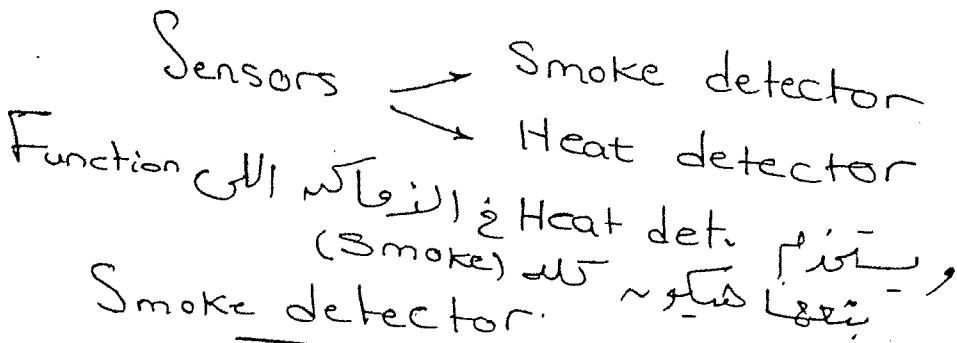 Sensors → Smoke detector
→ Heat detector
ويستخدم Heat det. في الأماكن اللي Function
بتعها هيكون كله (Smoke)
Smoke detector.